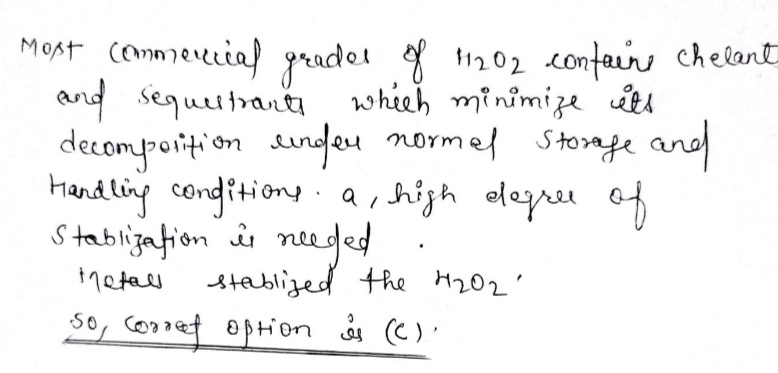 Most commercial grades of H2O2 contains chelant
and sequestrants which minimize its
decomposition under normal storage and
Handling conditions. a, high degree of
stablization is needed.
metals stablized the H2O2.
so, correct option is (c).